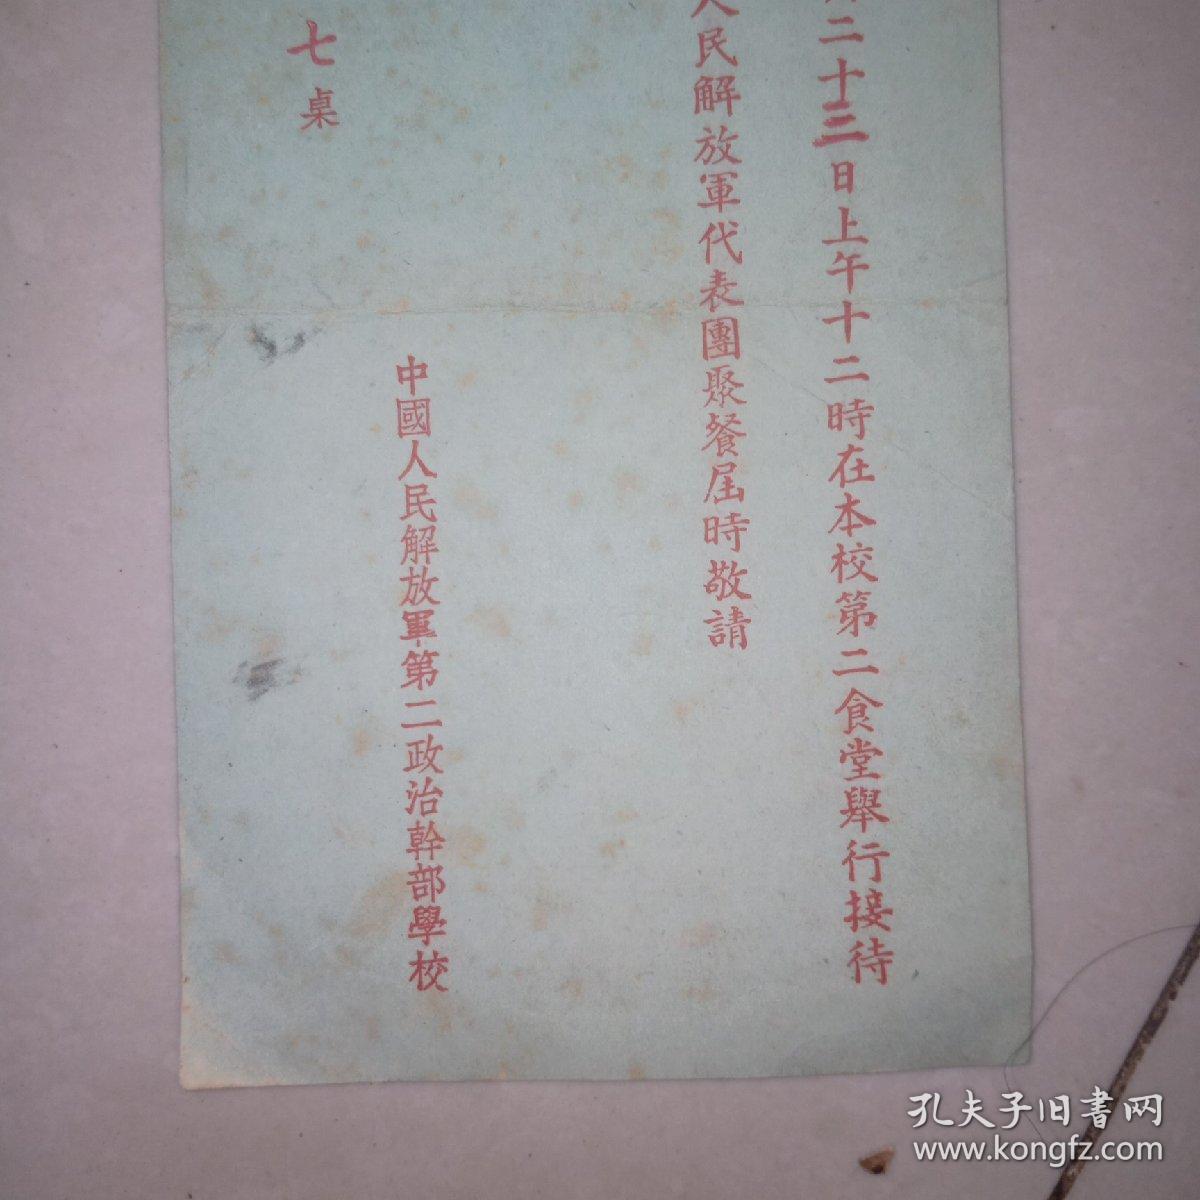 二十三日上午十二時在本校第二食堂舉行接待
人民解放軍代表團聚餐屆時敬請
中國人民解放軍第二政治幹部學校
七桌
孔夫子旧书网
www.kongfz.com